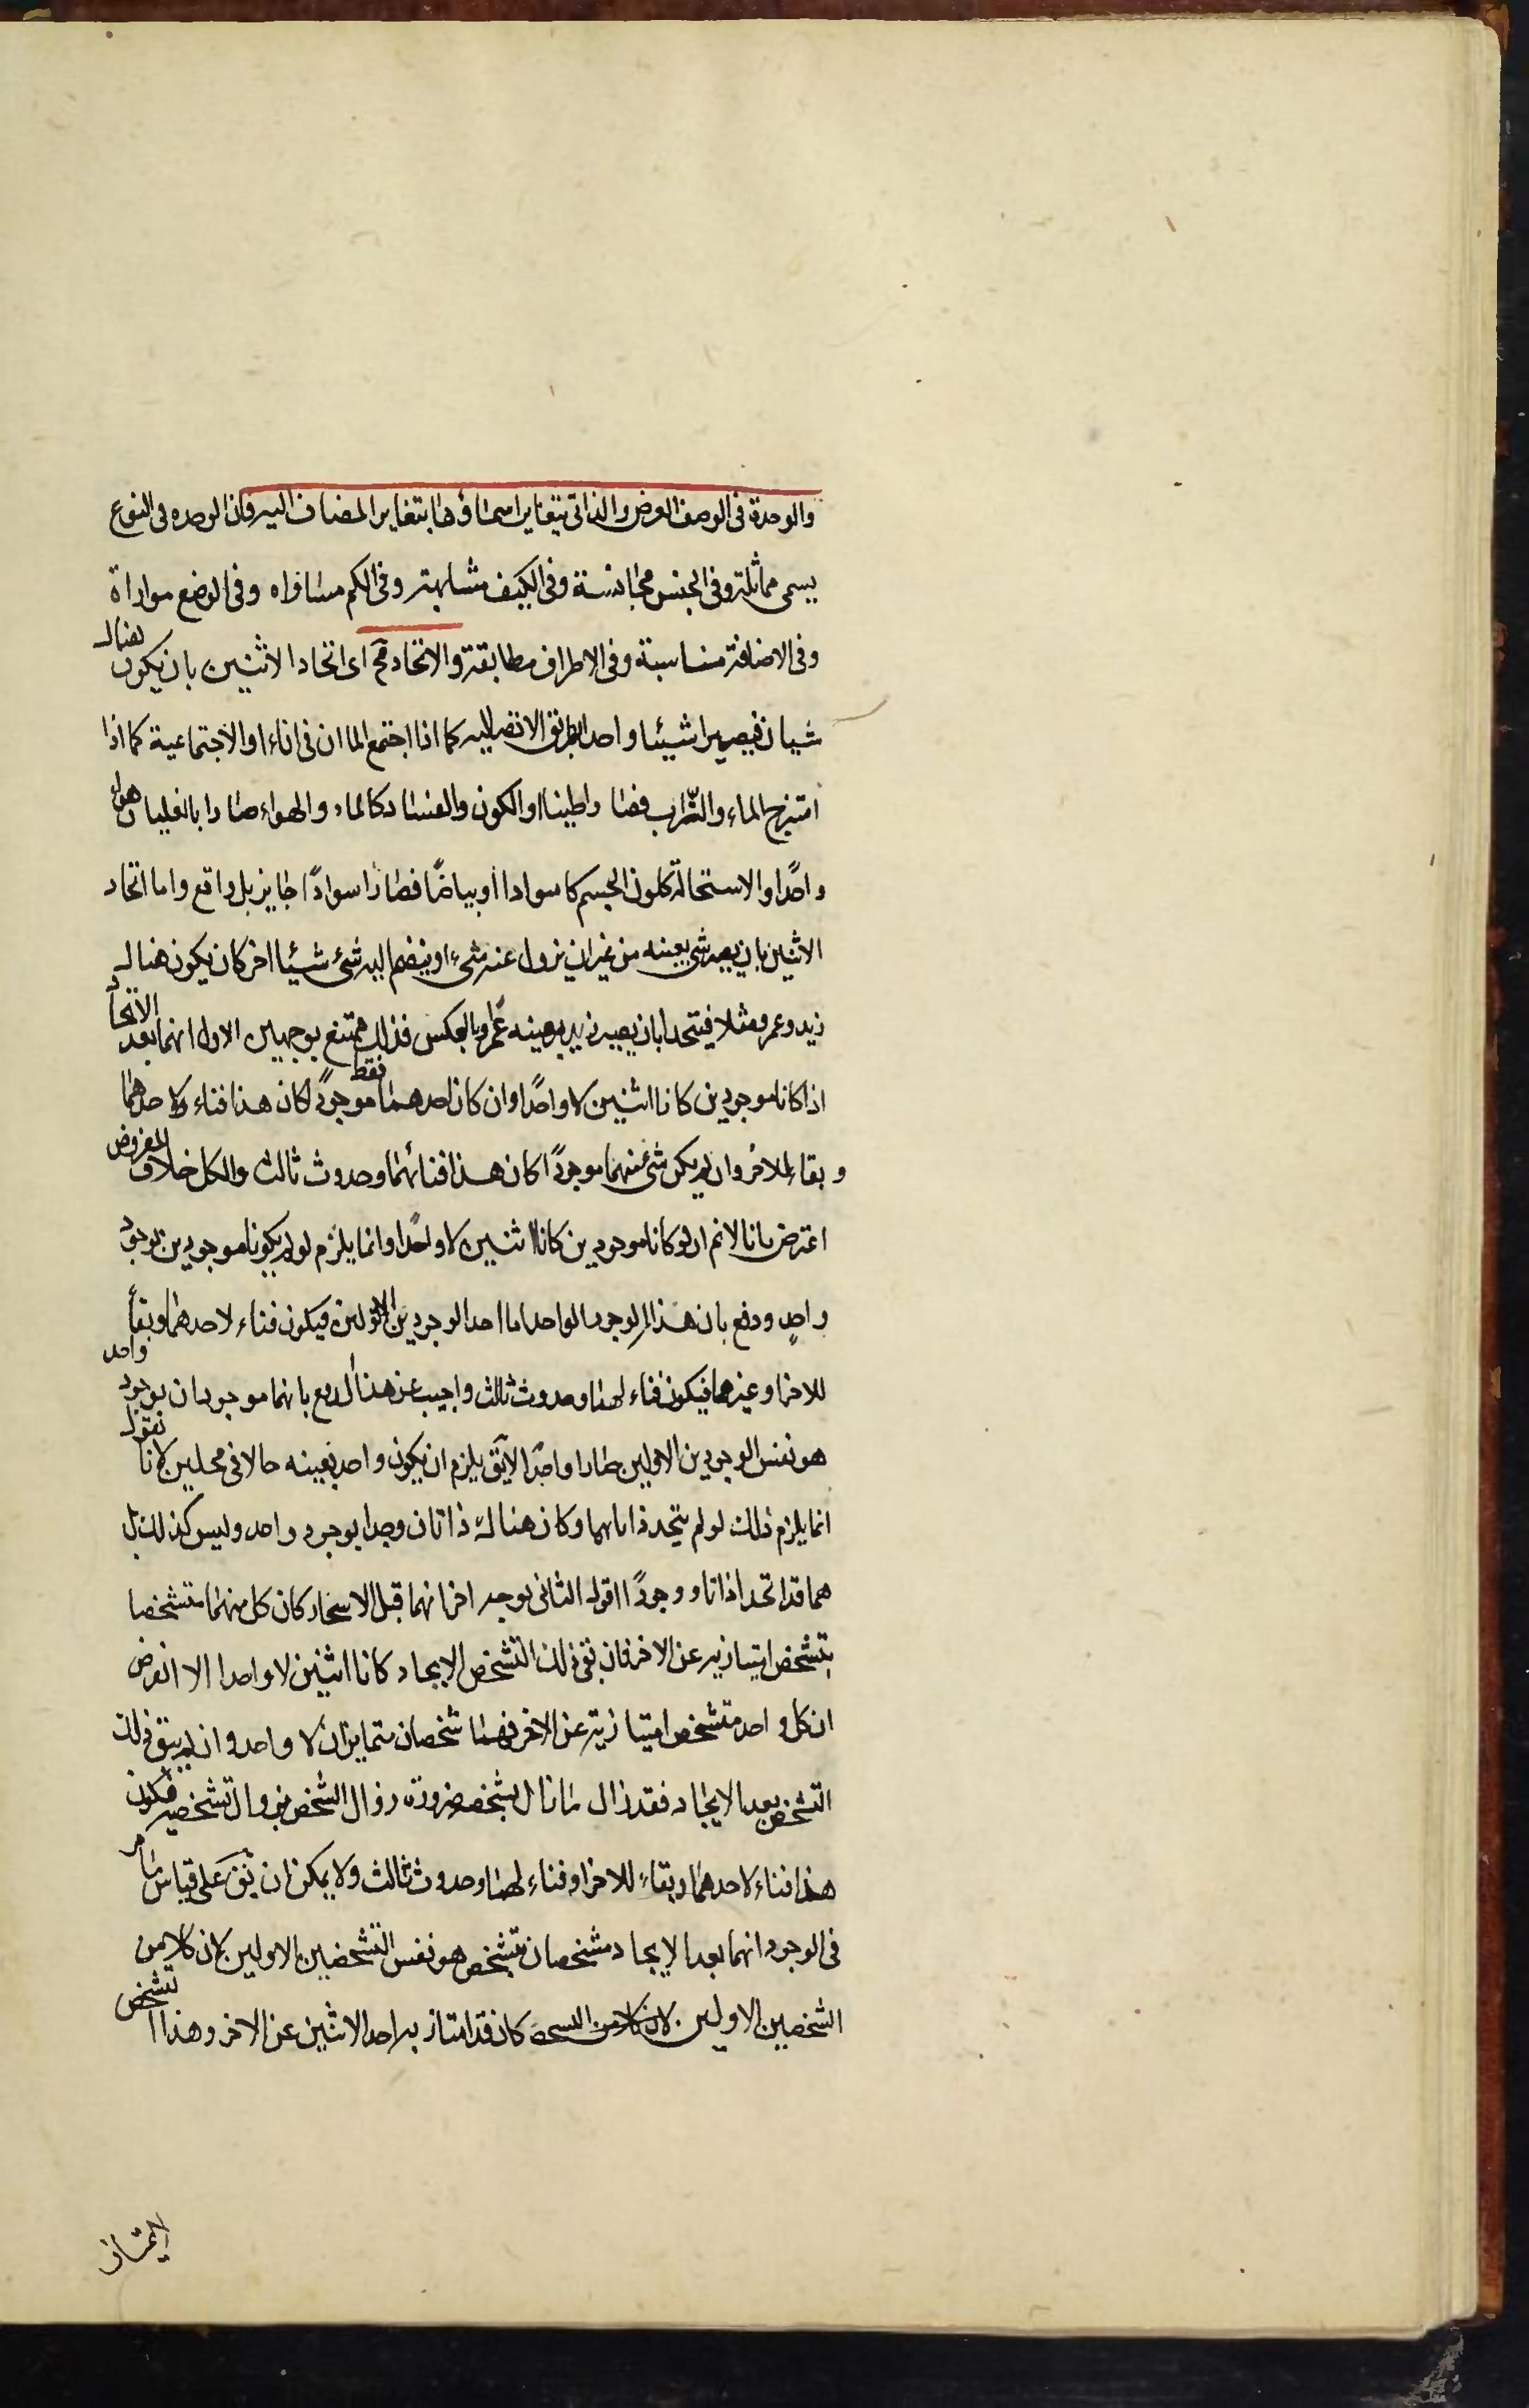 والوحدة فى الوصف العرضى والذاتى يتغاير اسماؤها بتغاير المضاف اليه فان الوحده فى النوع
يسمى مماثلة وفى الجنس مجانسة وفى الكيف مشابهة وفى الكم مساواه وفى الوضع موازاة
وفى الاضافة مناسبة وفى الاطراف مطابقة والاتحاد مح اى اتحاد الاثنين بان يكون هناك
شيان فيصيرا شيئا واحدا بطريق الاتصاليه كما اذا اجتمع الماان فى اناء او الاجتماعية كما اذا
امتزج الماء والتراب فصارا طينا او الكون والفساد كالماء والهواء صارا بالغليان هواء
واحدًا والاستحالة كلون الجسم كا سوادا او بياضًا فصارا سوادًا جايز بل واقع واما اتحاد
الاثنين بان يصير شئ بعينه من غير ان يزول عنه شئ او ينضم اليه شئ شيئا اخر كان يكون هناك
زيد وعمرو مثلا فيتحدا بان يصير زيد بعينه عمرًا وبالعكس فذلك ممتنع بوجهين الاول انهما بعد الاتحاد
اذا كانا موجودين كانا اثنين لا واحدًا وان كان احدهما فقط موجودًا كان هذا فناء لاحدهما
وبقاء للاخر وان لم يكن شئ منهما موجودًا كان هذا فنائهما وحدوث ثالث والكل خلاف المفروض
اعترض بانا لانم ان لو كانا موجودين كانا اثنين لا واحدًا وانما يلزم لو لم يكونا موجودين بوجود
واحدٍ ودفع بان هذا الوجود الواحد اما احد الوجودين الاولين فيكون فناء لاحدهما وبقاءً
للاخر او غيرهما فيكون فناء لهما وحدوث ثالث واجيب عن هذا الدفع بانهما موجودان بوجود واحد
هو نفس الوجودين الاولين صارا واحدًا لايق يلزم ان يكون واحد بعينه حالا فى محلين لانا نقول
انما يلزم ذلك لو لم يتحد ذاتاهما وكان هناك ذاتان وجدا بوجود واحد وليس كذلك بل
هما قد اتحدا ذاتا ووجودًا اقول الثانى بوجه اخر انهما قبل الاتحاد كان كل منهما متشخصا
بتشخص امتياز به عن الاخر فان بقى ذلك التشخص الايجاد كانا اثنين لا واحدا الا انفرض
ان كل واحد متشخص امتياز به عن الاخر فهما شخصان متمايزان لا واحد وان لم يبق ذلك
التشخص بعد الايجاد فقد زال مازال بشخصه ضرورة زوال الشخص بزوال تشخصه فيكون
هذا فناء لاحدهما وبقاءً للاخر او فناء لهما وحدوث ثالث ولا يمكن ان يق على قياس مامر
فى الوجود انهما بعد الايجاد متشخصان بتشخص هو نفس التشخصين الاولين لان كلا من
الشخصين الاولين لان كلا من الشخص كان قد امتاز به احد الاثنين عن الاخر وهذا التشخص
لايمتاز